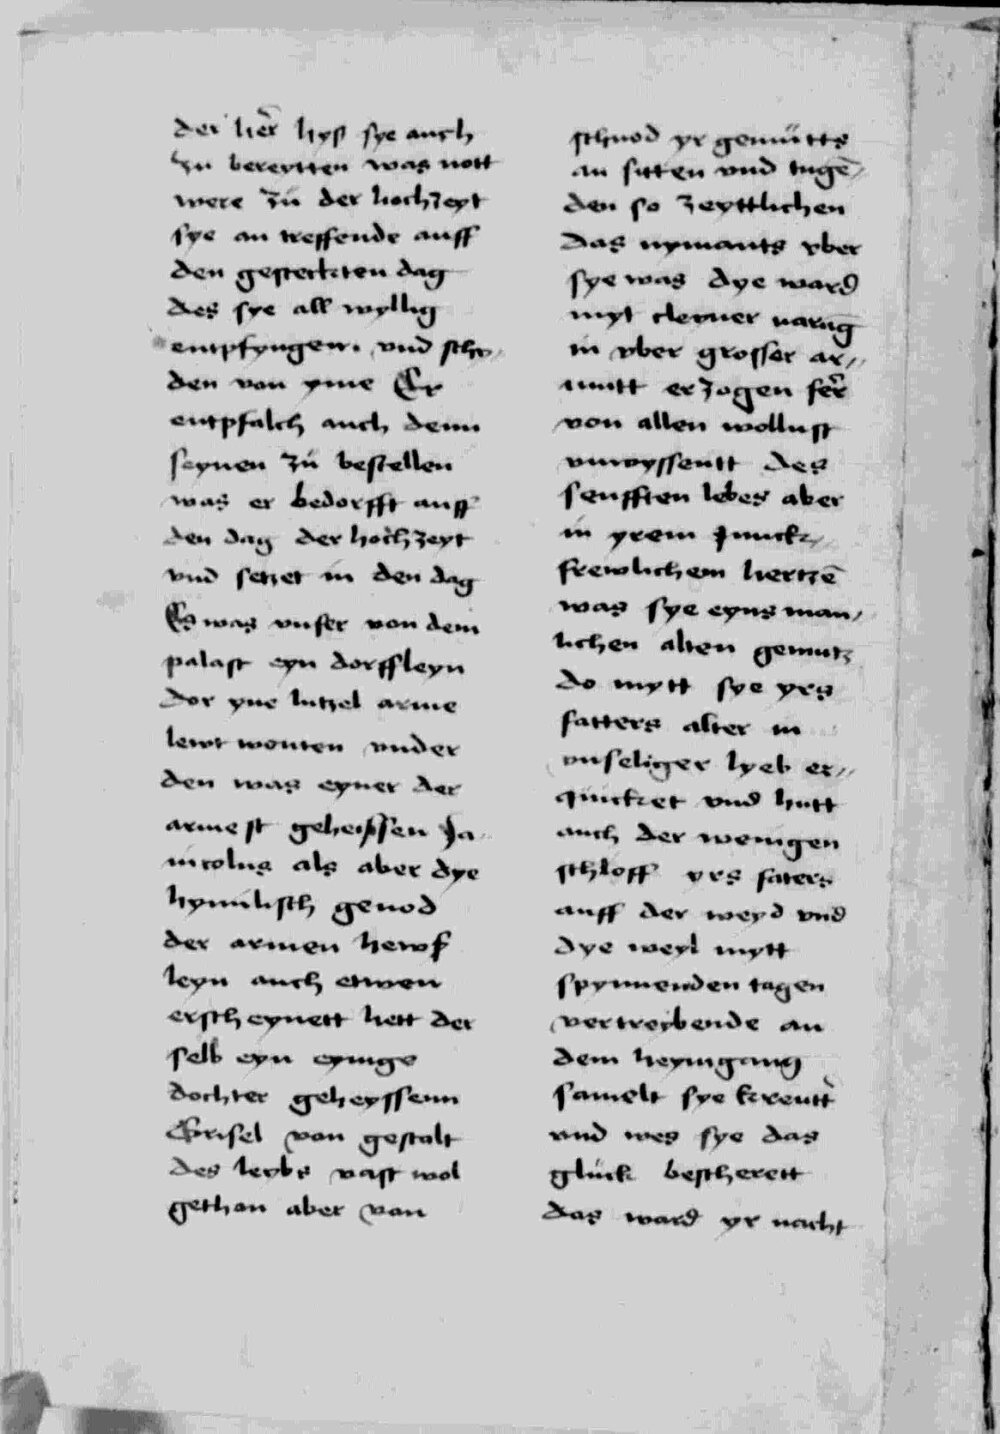 der her̄ hyß sye auch
zu bereytten was nott
were zů der hochzeyt
sye an treffende auff
den gesteckten dag
des sye all wyllig
entpfyngen. vnd schy
den von yme Er
entpfalch auch denn
seynen zů bestellen
was er bedorfft auff
den dag der hochzeyt
vnd setzet in den dag
Es was vnfer von dem
palast eyn dorffleyn
dor yne lutzel arme
lewt wonten vnder
den was eyner der
armest geheissen Ja
nicolus als aber dye
hymlisch genod
der armen hewß
leyn auch etwen
erscheynett hett der
selb eyn eynige
dochter geheyssenn
Grisel von gestalt
des leybs vast wol
gethon aber von
schnod yr gemütts
an sitten vnd tugē//
den so zeyttlichen
das nymants vber
sye was dye ward
myt cleyner narūg
in vber grosser ar//
mutt erzogen fer̄
von allen wollust
vnwyssentt des
senfften lebes aber
in yrem Junck//
frewlichem hertzē
was sye eyns man/
lichen alten gemutz
do mytt sye yrs
fatters alter in
vnseliger lyeb er//
quicket vnd hutt
auch der wenigen
schloff yrs faters
auff der weyd vnd
dye weyl mytt
spynnenden tagen
vertreybende an
dem heymgang
samelt sye kreutt
vnd wes sye das
glück bescherett
das ward yr nacht